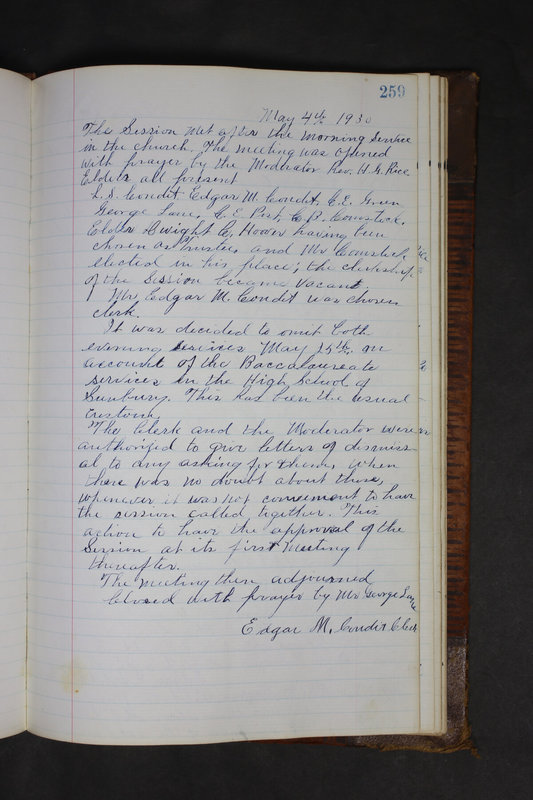 259
May 4th 1930
The Session met after the morning service
in the church. The meeting was opened
with prayer by the Moderator Rev. H. G. Rice
Elders all present
L. S. Condit, Edgar M. Condit, C. E. Green
George Lane, C. E. Post, C. B. Comstock.
Elder Dwight C. Hoover having been
chosen as Trustee and Mr Comstock
elected in his place; the clerkship
of the Session became vacant,
Mr Edgar M. Condit was chosen
clerk.
It was decided to omit both
evening services May 25th on
account of the Baccalaureate
services in the High School of
Sunbury. This has been the usual
custom.
The Clerk and the Moderator were
authorized to give letters of dismiss
al to any asking for them, when
there was no doubt about those,
whenever it was not convenient to have
the session called together. This
action to have the approval of the
Session at its first meeting
thereafter.
The meeting then adjourned
Closed with prayer by Mr George Lane
Edgar M. Condit Clerk